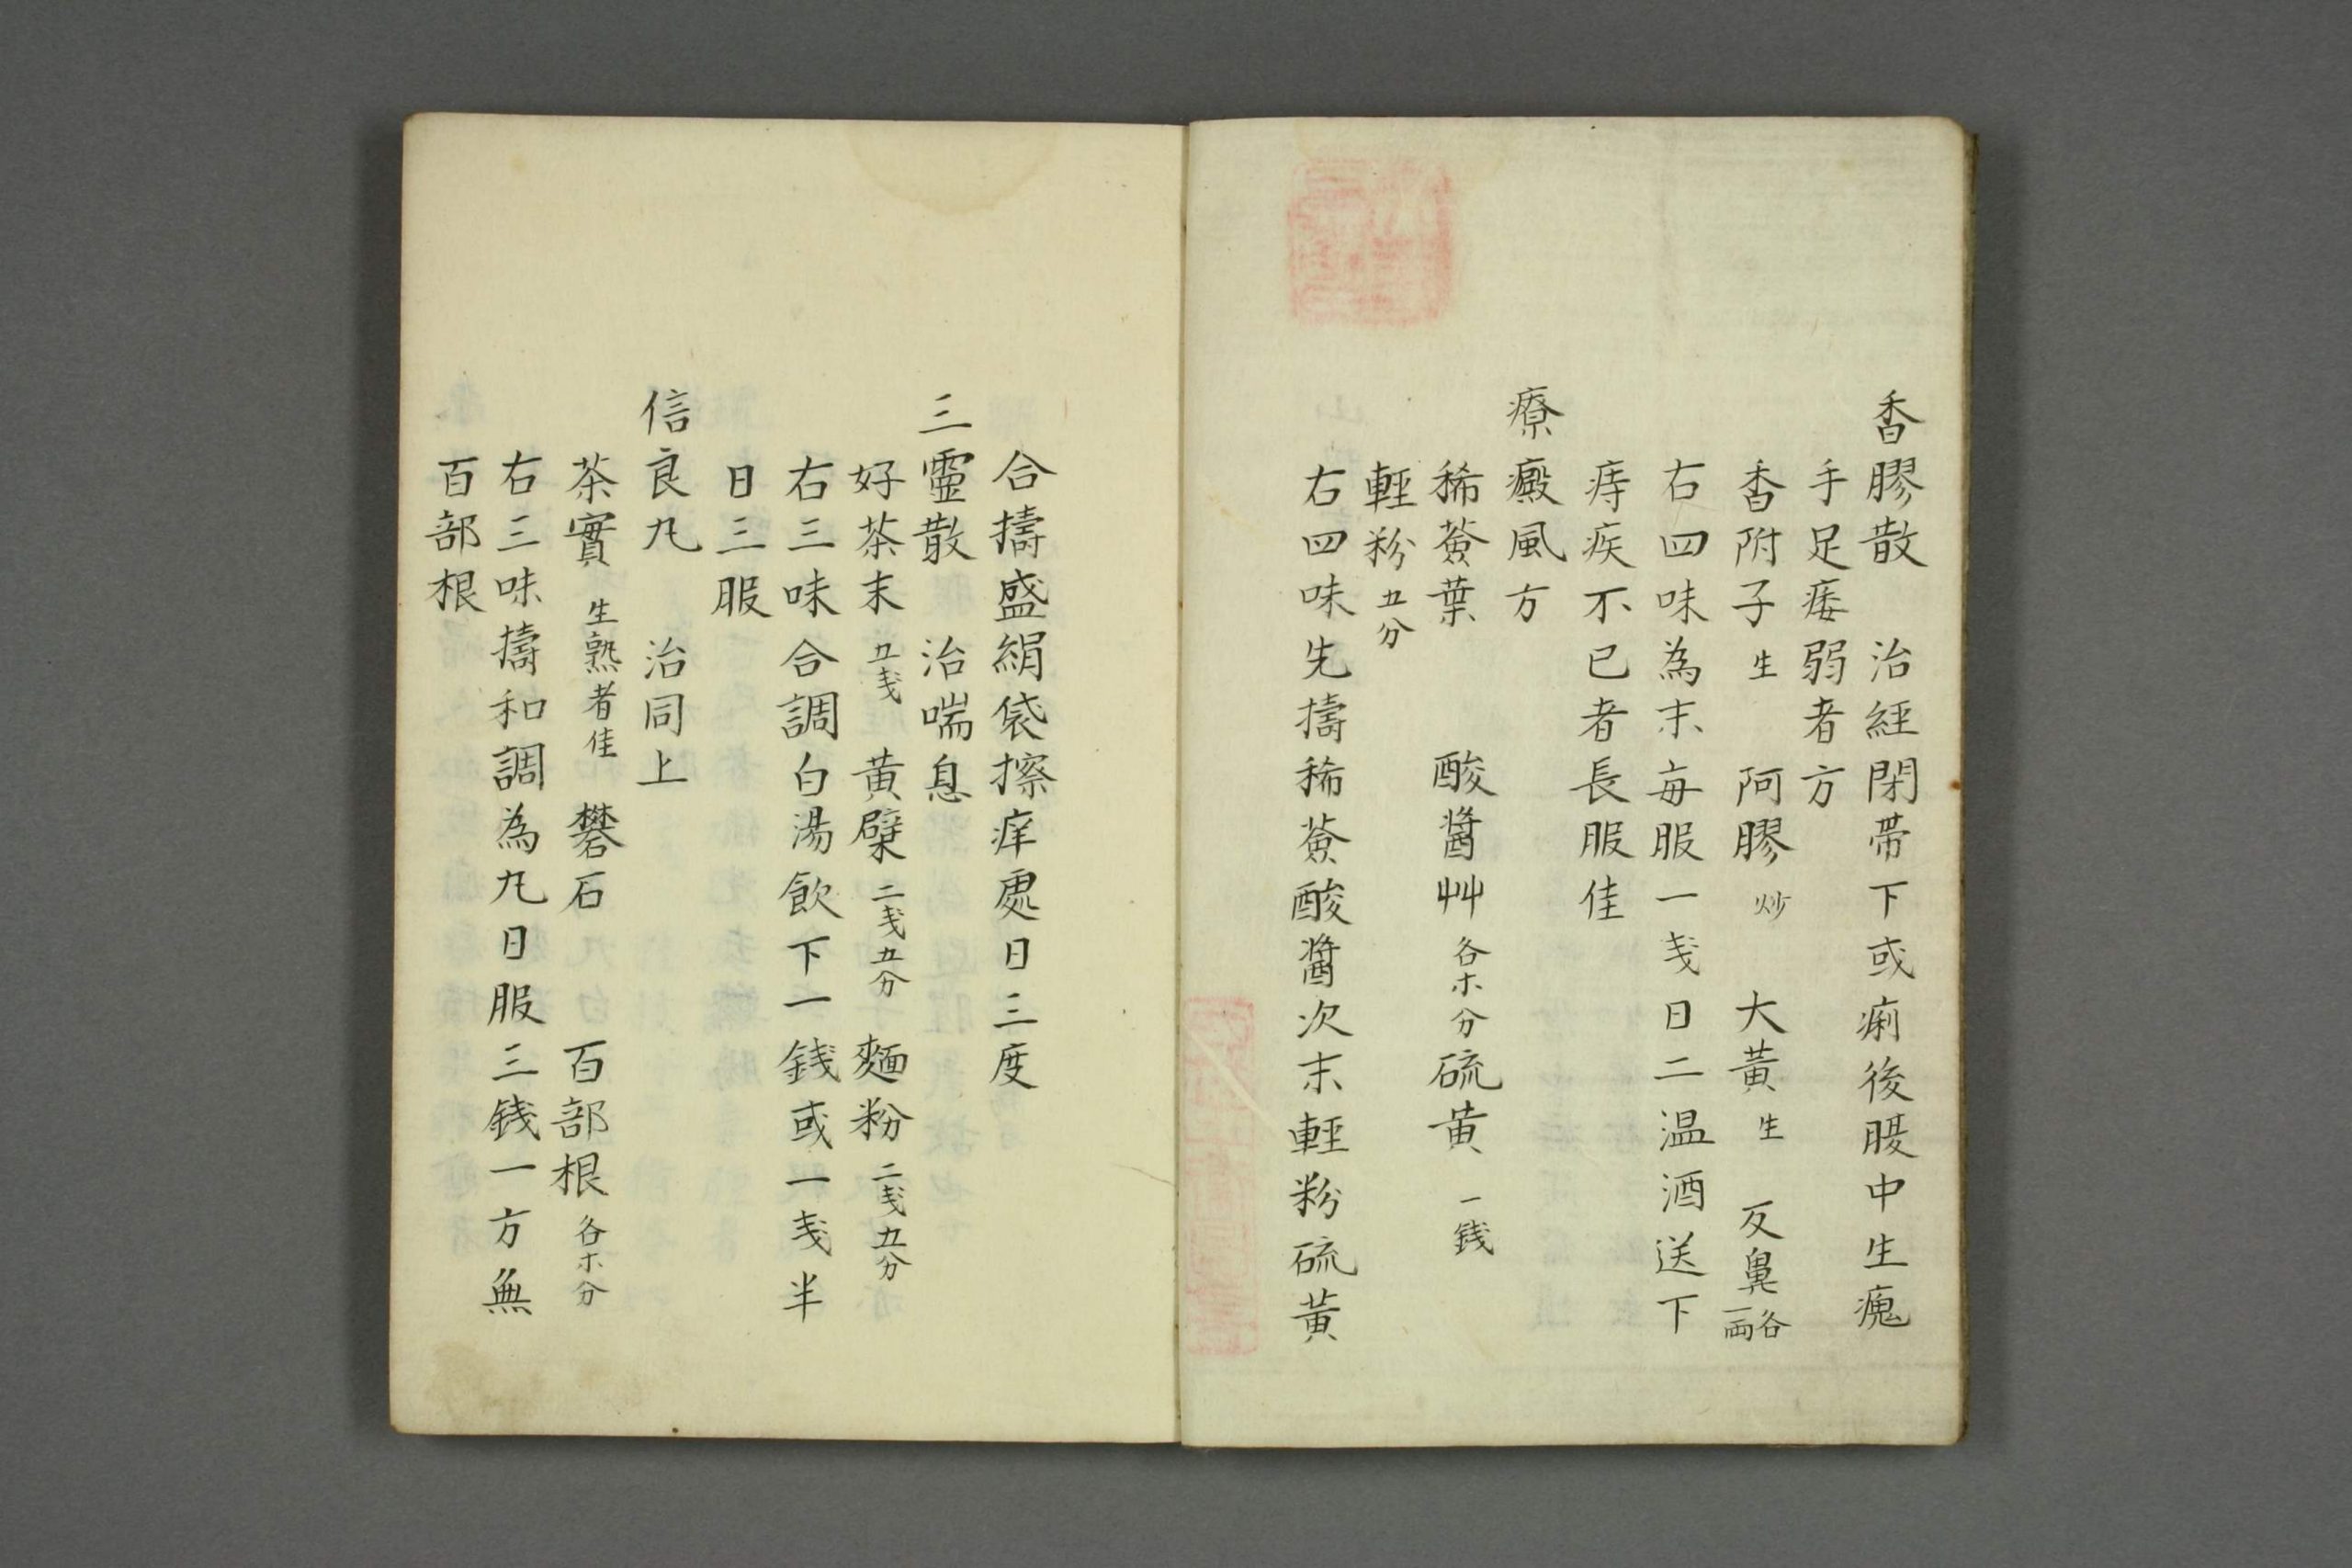 香膠散 治經閉帶下或痢後腰中生瘣
手足痿弱者方
香附子 生 阿膠 炒 大黃 生 反鼻 各一両
右四味為末每服一戔日二温酒送下
痔疾不已者長服佳
療癜風方
稀薟葉 酸醬艸 各ホ分 硫黄 一銭
輕粉 五分
右四味先擣稀薟酸醬次末輕粉硫黃
合擣盛絹袋擦痒處日三度
三靈散 治喘息
好茶末 五戔 黄檗 二戔五分 麵粉 二戔五分
右三味合調白湯飲下一銭或一戔半
日三服
信良丸 治同上
茶實 生熟者佳 礬石 百部根 各ホ分
右三味擣和調為丸日服三銭一方無
百部根